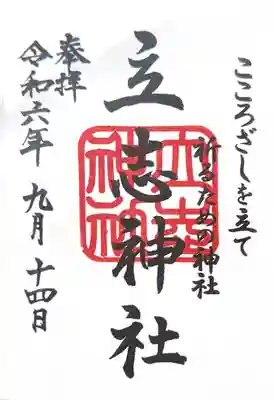 こころざしを立て
祈るための神社
立志神社
奉拝
令和六年 九月 十四日